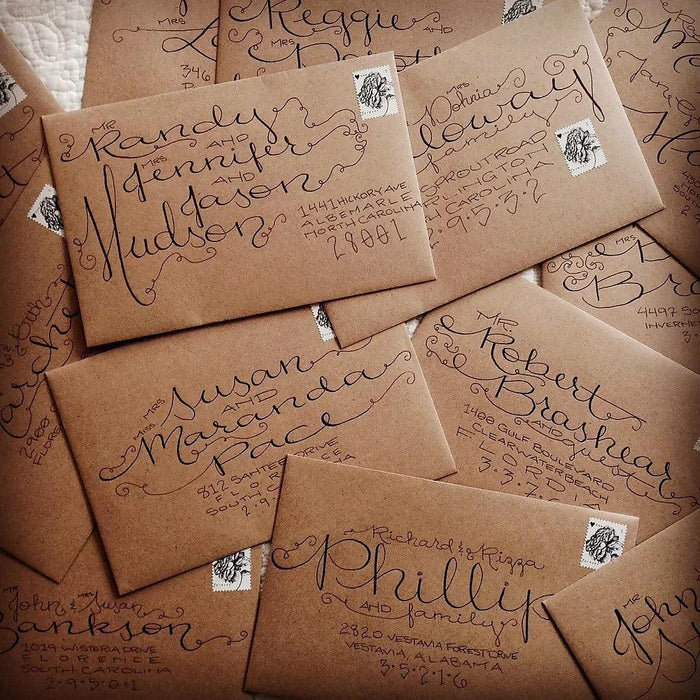 MRS
346
Reggie
AND
MRS
MR
Randy
AND
MRS
Jennifer
AND
Jason
Hudson
1441 HICKORY AVE
ALBEMARLE
NORTH CAROLINA
28001
MRS
Dohnia
loway
family
SPROUT ROAD
RLINGTON
CAROLINA
2.9.5.3.2
MRS
4497
INVERNE
MRS
Susan
AND
MISS
Maranda
Pace
812 SANTEE DRIVE
FLORENCE
SOUTH CA
2.9
MR.
Robert
Brashear
AND guest
1400 GULF BOULEVARD
CLEARWATER BEACH
FLORDIA
3.3.7.
2900
FLORE
Richard & Rizza
Phillip
AND family
2820 VESTAVIA FOREST DRIVE
VESTAVIA, ALABAMA
3.5.2.1.6
MR
John & MRS Susan
Bankson
1019 WISTERIA DRIVE
FLORENCE
SOUTH CAROLINA
2.9.5.0.1
MR
John